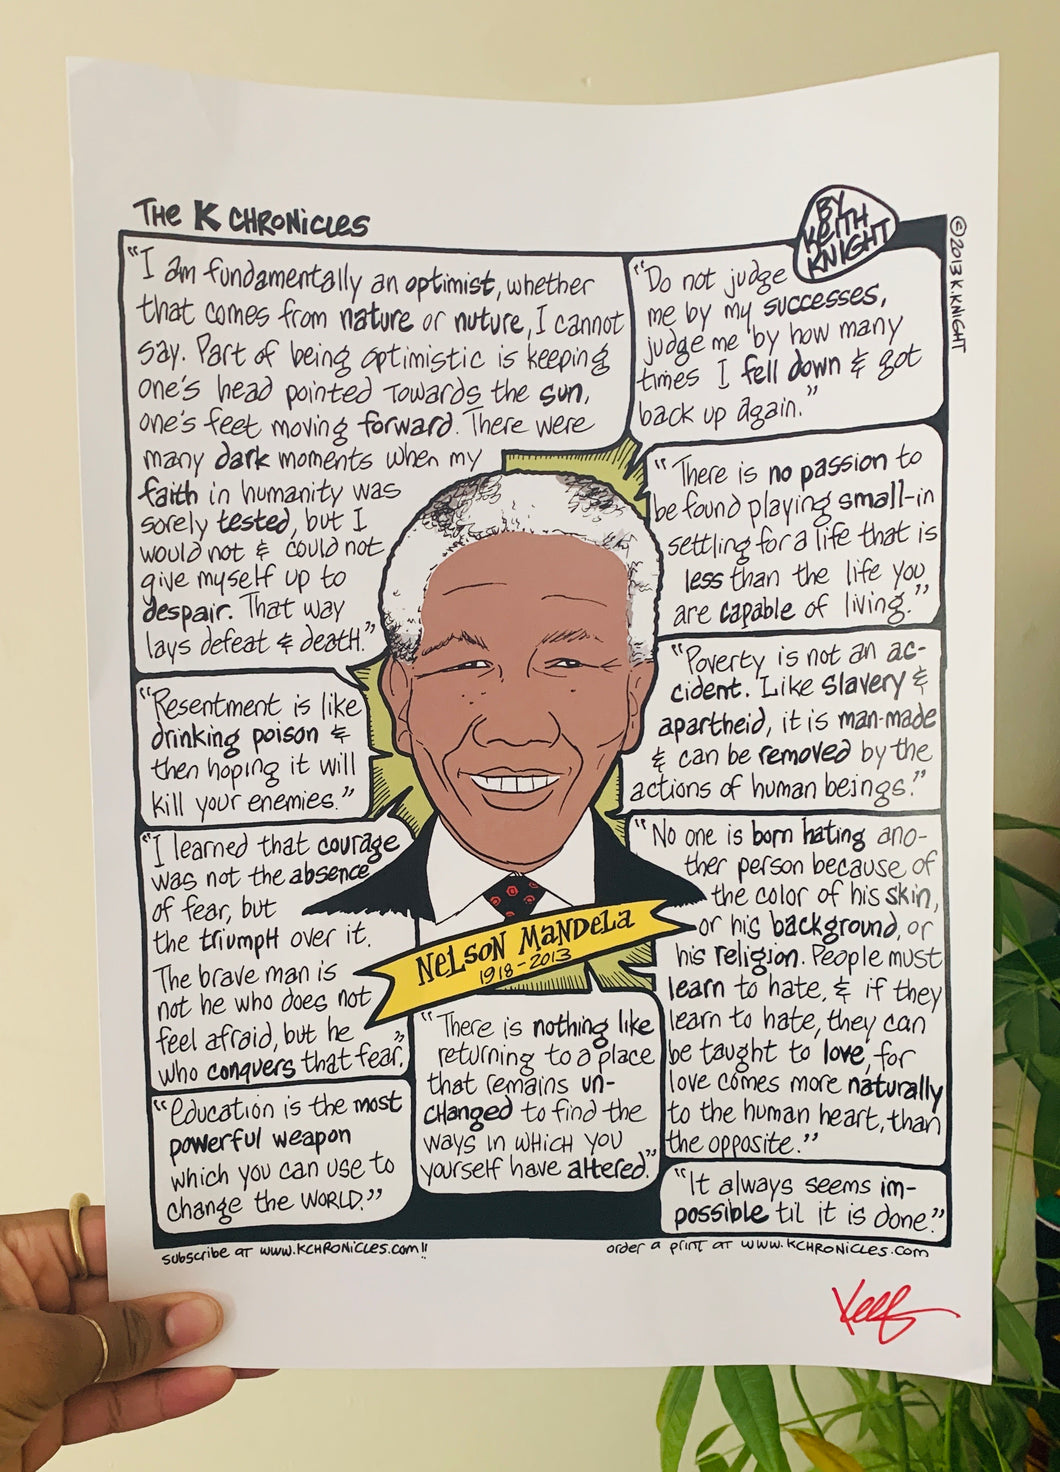 The K Chronicles
By
Keith
Knight
©2013 K.Knight
"I am fundamentally an optimist, whether
that comes from nature or nuture, I cannot
say. Part of being optimistic is keeping
one's head pointed towards the sun,
one's feet moving forward. There were
many dark moments when my
faith in humanity was
sorely tested, but I
would not & could not
give myself up to
despair. That way
lays defeat & death."
"Do not judge
me by my successes,
judge me by how many
times I fell down & got
back up again."
"There is no passion to
be found playing small-in
settling for a life that is
less than the life you
are capable of living."
"Resentment is like
drinking poison &
then hoping it will
kill your enemies."
"Poverty is not an ac-
cident. Like slavery &
apartheid, it is man-made
& can be removed by the
actions of human beings."
"I learned that courage
was not the absence
of fear, but
the triumph over it.
The brave man is
not he who does not
feel afraid, but he
who conquers that fear."
"No one is born hating ano-
ther person because of
the color of his skin,
or his background, or
his religion. People must
learn to hate, & if they
learn to hate, they can
be taught to love, for
love comes more naturally
to the human heart, than
the opposite."
Nelson Mandela
1918-2013
"Education is the most
powerful weapon
which you can use to
change the world."
"There is nothing like
returning to a place
that remains un-
changed to find the
ways in which you
yourself have altered."
"It always seems im-
possible 'til it is done."
subscribe at www.kchronicles.com!!
order a print at www.kchronicles.com
Keef